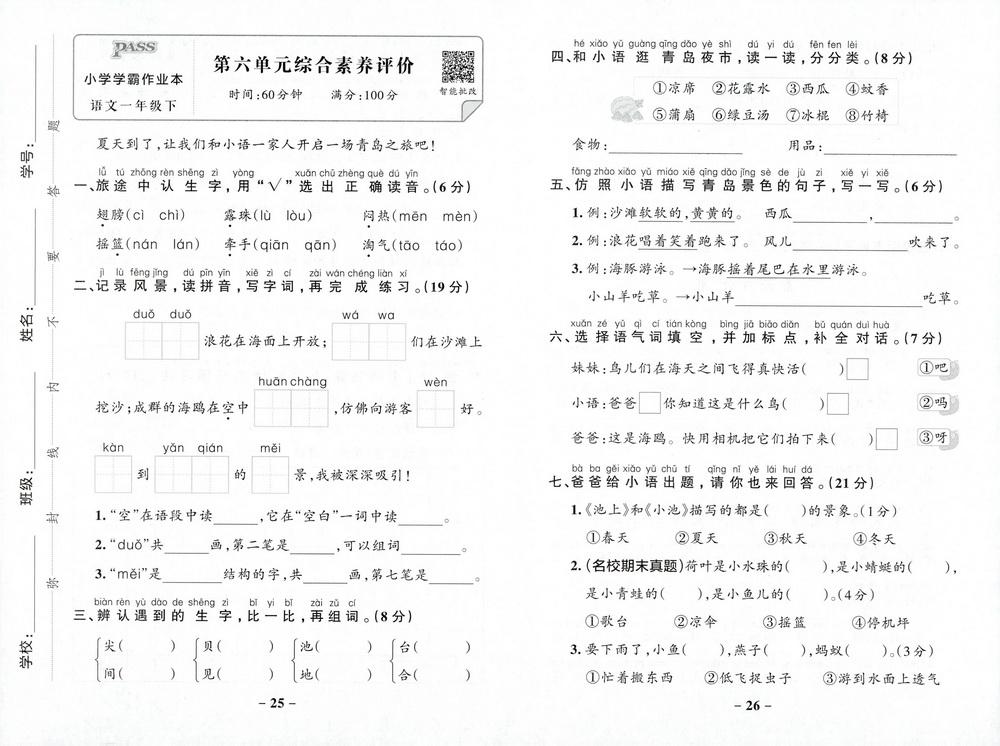 PASS
小学学霸作业本
语文一年级下
第六单元综合素养评价
时间:60分钟 满分:100分
智能批改
学号:
姓名:
班级:
学校:
题
答
要
不
内
线
封
弥
夏天到了,让我们和小语一家人开启一场青岛之旅吧!
lǚ tú zhōng rèn shēng zì yòng xuǎn chū zhèng què dú yīn
一、旅途中认生字,用“√”选出正确读音。(6分)
翅膀(cì chì) 露珠(lù lòu) 闷热(mēn mèn)
摇篮(nán lán) 牵手(qiān qān) 淘气(tāo táo)
jì lù fēng jǐng dú pīn yīn xiě zì cí zài wán chéng liàn xí
二、记录风景,读拼音,写字词,再完成练习。(19分)
duǒ duǒ wá wa
浪花在海面上开放; 们在沙滩上
huān chàng wèn
挖沙;成群的海鸥在空中 ,仿佛向游客 好。
kàn yǎn qián měi
到 的 景,我被深深吸引!
1.“空”在语段中读 ,它在“空白”一词中读 。
2.“duǒ”共 画,第二笔是 ,可以组词 。
3.“měi”是 结构的字,共 画,第七笔是 。
biàn rèn yù dào de shēng zì bǐ yi bǐ zài zǔ cí
三、辨认遇到的生字,比一比,再组词。(8分)
尖( ) 贝( ) 池( ) 台( )
间( ) 见( ) 地( ) 合( )
– 25 –
hé xiǎo yǔ guàng qīng dǎo yè shì dú yi dú fēn fen lèi
四、和小语逛青岛夜市,读一读,分分类。(8分)
①凉席 ②花露水 ③西瓜 ④蚊香
⑤蒲扇 ⑥绿豆汤 ⑦冰棍 ⑧竹椅
食物: 用品:
fǎng zhào xiǎo yǔ miáo xiě qīng dǎo jǐng sè de jù zi xiě yi xiě
五、仿照小语描写青岛景色的句子,写一写。(6分)
1.例:沙滩软软的,黄黄的。 西瓜 , 。
2.例:浪花唱着笑着跑来了。 风儿 吹来了。
3.例:海豚游泳。→海豚摇着尾巴在水里游泳。
小山羊吃草。→小山羊 吃草。
xuǎn zé yǔ qì cí tián kòng bìng jiā biāo diǎn bǔ quán duì huà
六、选择语气词填空,并加标点,补全对话。(7分)
妹妹:鸟儿们在海天之间飞得真快活( )□ ①吧
小语:爸爸□你知道这是什么鸟( )□ ②吗
爸爸:这是海鸥。快用相机把它们拍下来( )□ ③呀
bà ba gěi xiǎo yǔ chū tí qǐng nǐ yě lái huí dá
七、爸爸给小语出题,请你也来回答。(21分)
1.《池上》和《小池》描写的都是( )的景象。(1分)
①春天 ②夏天 ③秋天 ④冬天
2.(名校期末真题)荷叶是小水珠的( ),是小蜻蜓的( ),
是小青蛙的( ),是小鱼儿的( )。(4分)
①歌台 ②凉伞 ③摇篮 ④停机坪
3.要下雨了,小鱼( ),燕子( ),蚂蚁( )。(3分)
①忙着搬东西 ②低飞捉虫子 ③游到水面上透气
– 26 –